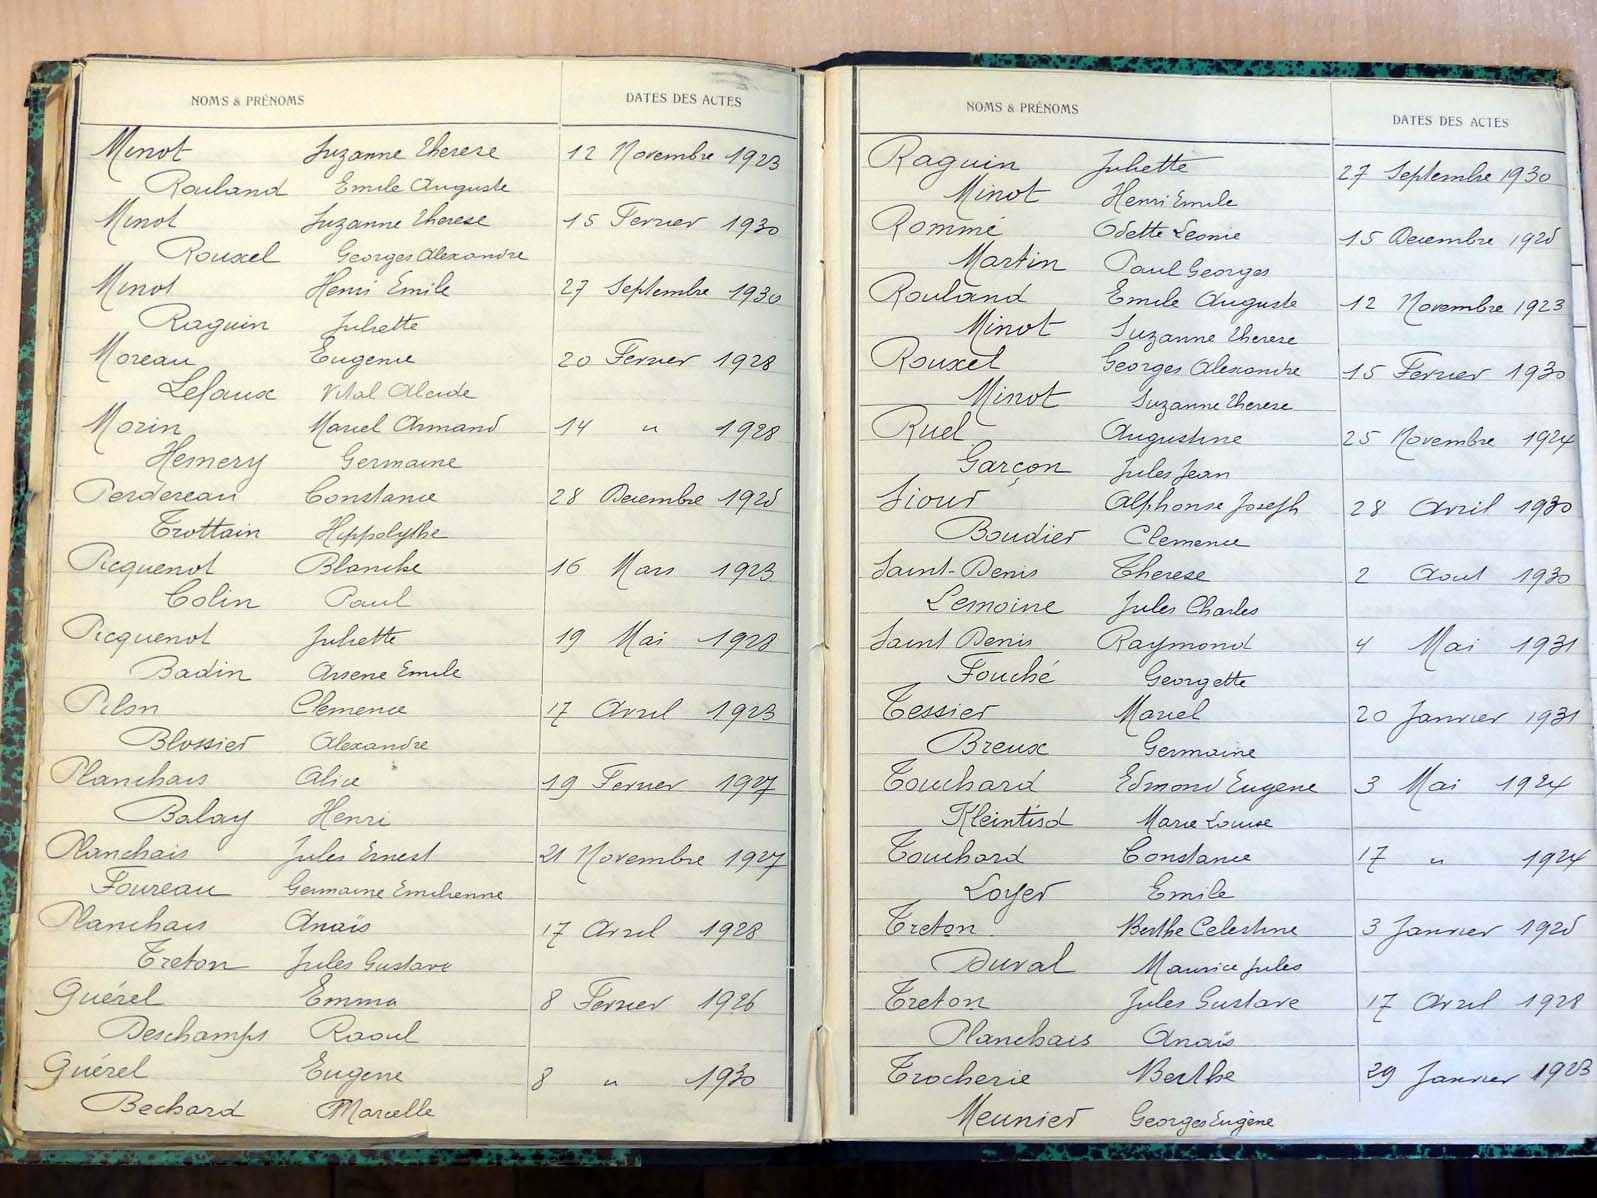 NOMS & PRÉNOMS DATES DES ACTES
Minot Suzanne Therese 12 Novembre 1923
Rouland Emile Auguste
Minot Suzanne Therese 15 Fevrier 1930
Rouxel Georges Alexandre
Minot Henri Emile 27 Septembre 1930
Raguin Juliette
Moreau Eugenie 20 Fevrier 1928
Lefaux Vital Alcide
Morin Marcel Armand 14 " 1928
Hemery Germaine
Perdereau Constance 28 Decembre 1925
Trottain Hippolythe
Picquenot Blanche 16 Mars 1923
Colin Paul
Picquenot Juliette 19 Mai 1928
Badin Arsene Emile
Pilon Clemence 17 Avril 1923
Blossier Alexandre
Planchais Alice 19 Fevrier 1927
Balay Henri
Planchais Jules Ernest 21 Novembre 1927
Foureau Germaine Emilienne
Planchais Anaïs 17 Avril 1928
Treton Jules Gustave
Quérel Emma 8 Fevrier 1926
Deschamps Raoul
Quérel Eugene 8 " 1930
Bechard Marcelle
NOMS & PRÉNOMS DATES DES ACTES
Raguin Juliette 27 Septembre 1930
Minot Henri Emile
Rommé Odette Leonie 15 Decembre 1925
Martin Paul Georges
Rouland Emile Auguste 12 Novembre 1923
Minot Suzanne Therese
Rouxel Georges Alexandre 15 Fevrier 1930
Minot Suzanne Therese
Ruel Augustine 25 Novembre 1924
Garçon Jules Jean
Siour Alphonse Joseph 28 Avril 1930
Boudier Clemence
Saint-Denis Therese 2 Aout 1930
Lemoine Jules Charles
Saint Denis Raymond 4 Mai 1931
Fouché Georgette
Tessier Marcel 20 Janvier 1931
Breux Germaine
Touchard Edmond Eugene 3 Mai 1924
Kleintisd Marie Louise
Touchard Constance 17 " 1924
Loyer Emile
Treton Berthe Celestine 3 Janvier 1925
Duval Maurice Jules
Treton Jules Gustave 17 Avril 1928
Planchais Anaïs
Trocherie Berthe 29 Janvier 1923
Meunier Georges Eugène